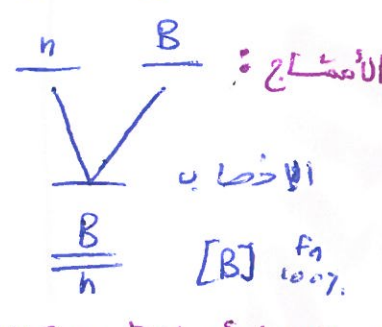 n B الأمشاج :
الإخصاب
B
n [B] F1 100%